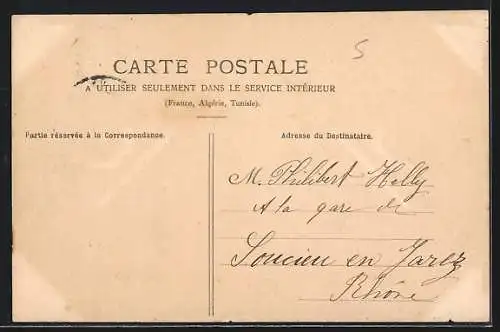 5
CARTE POSTALE
A UTILISER SEULEMENT DANS LE SERVICE INTÉRIEUR
(France, Algérie, Tunisie).
Partie réservée à la Correspondance.
Adresse du Destinataire.
M. Philibert Holly
A la gare de
Soucieu en Jarez
Rhône